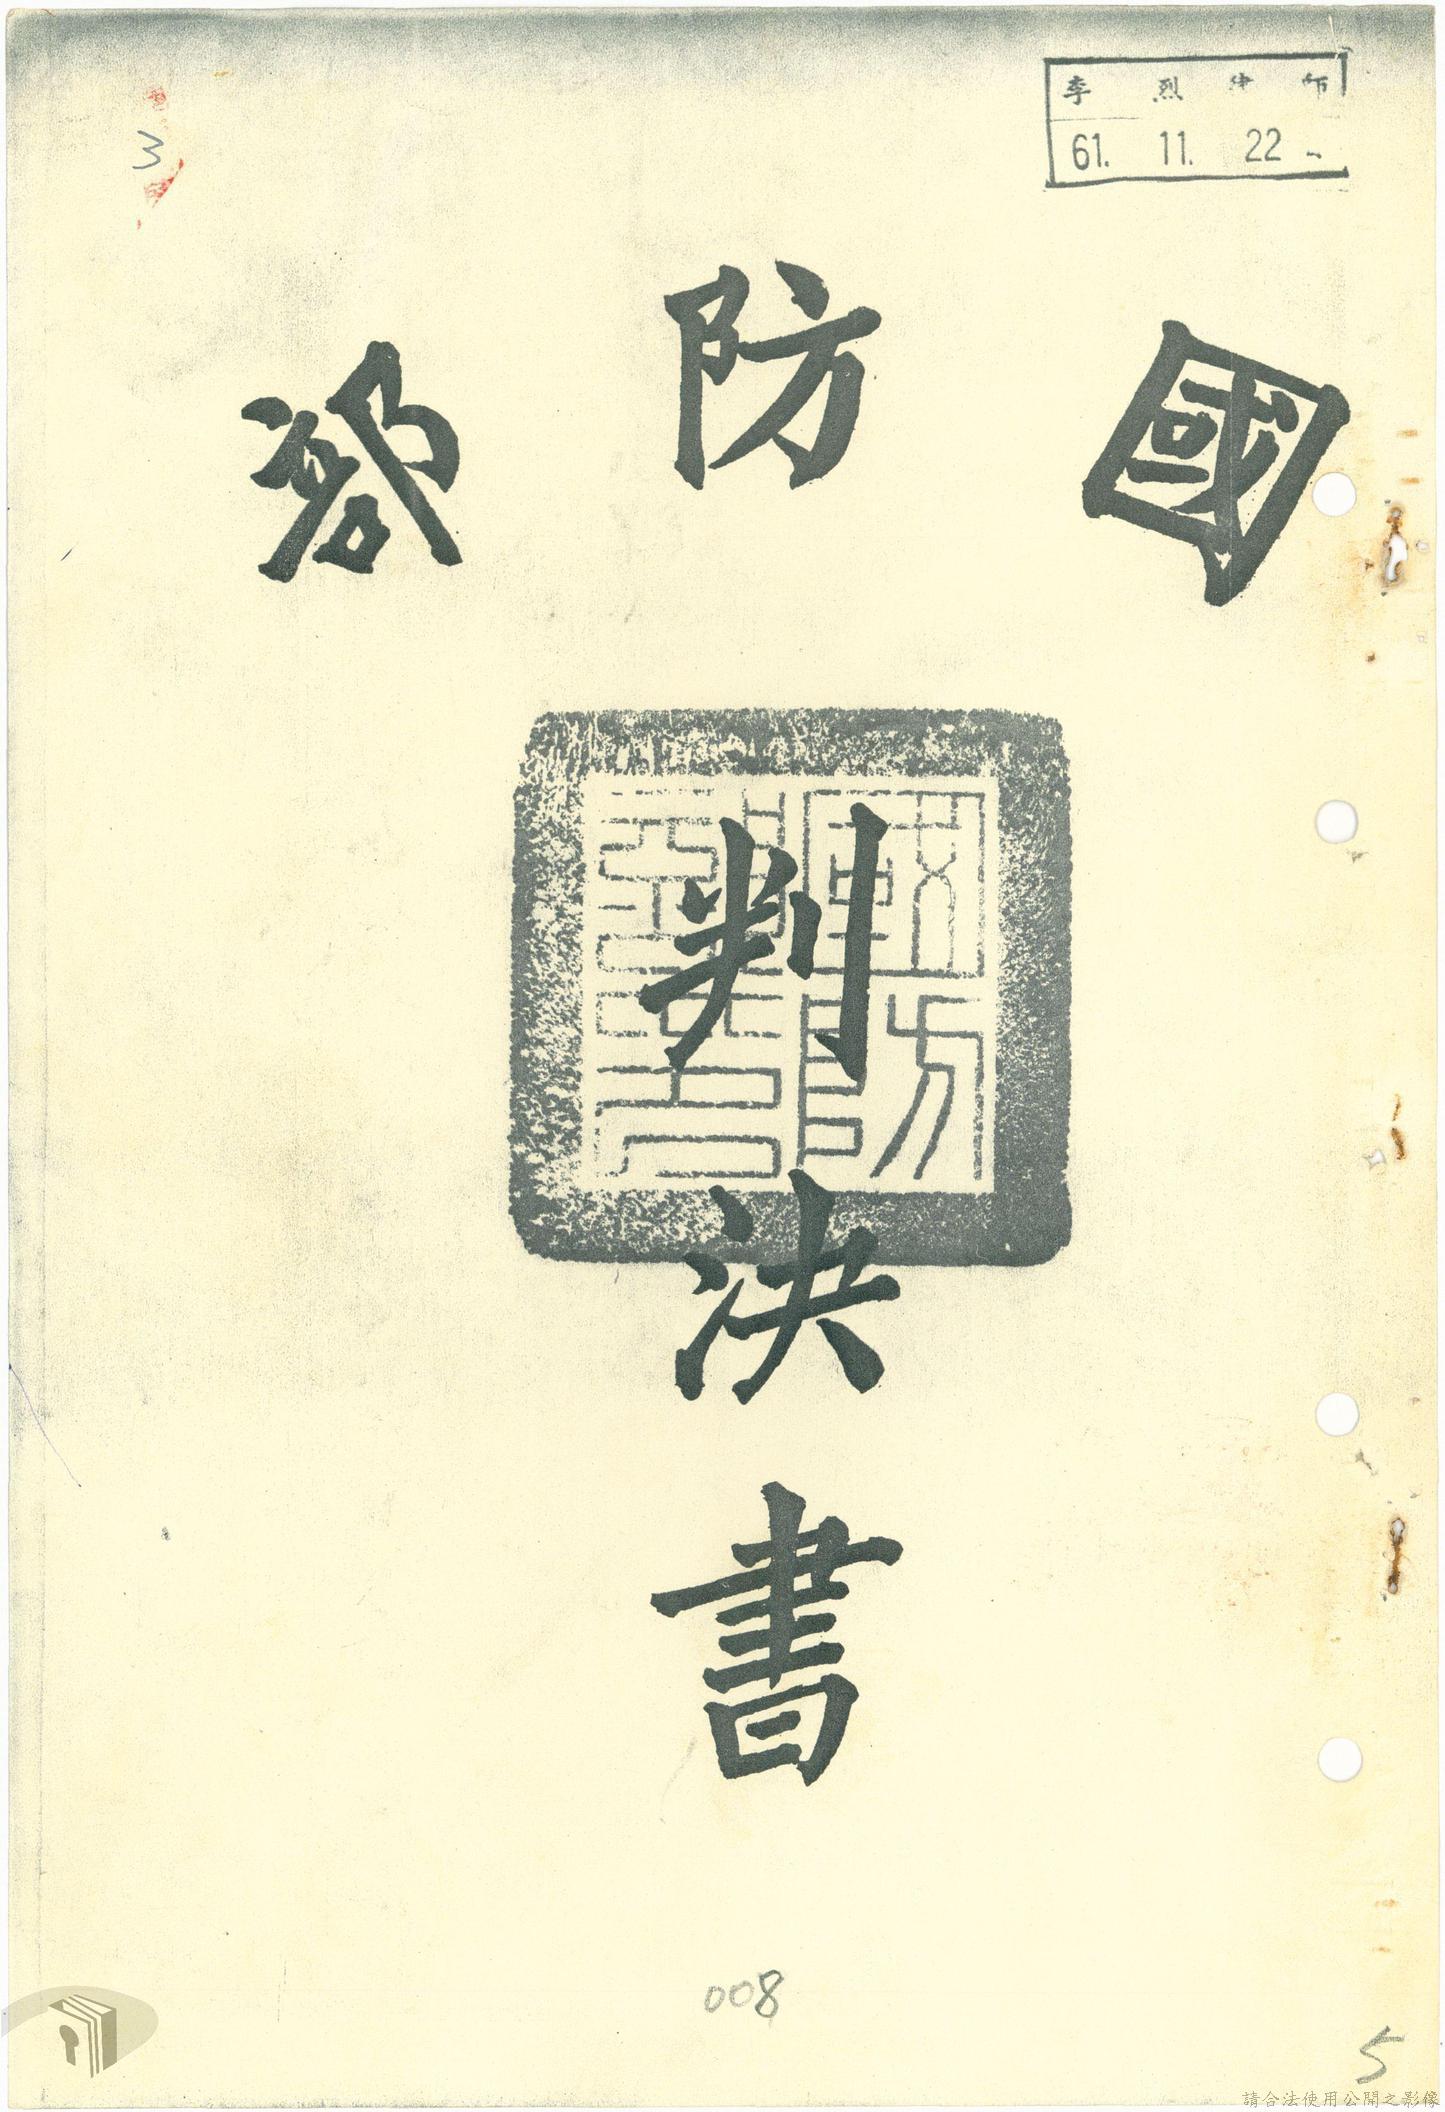 李烈律師
61. 11. 22
3
國防部
判決書
008
5
請合法使用公開之影像